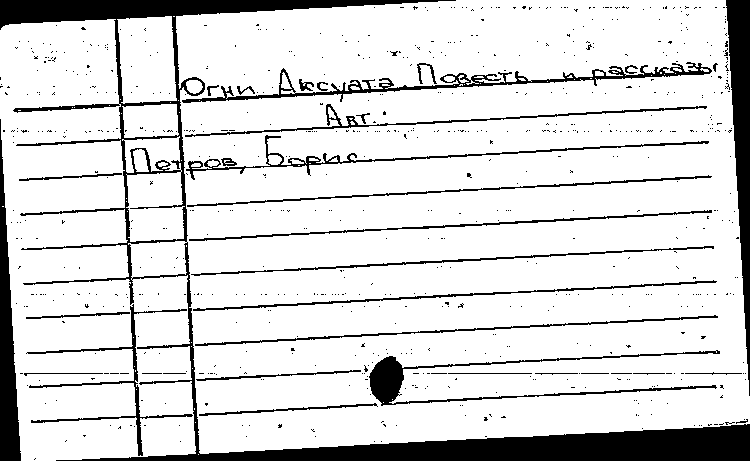 Огни Аксуата. Повесть и рассказы.
Авт.:
Петров, Борис